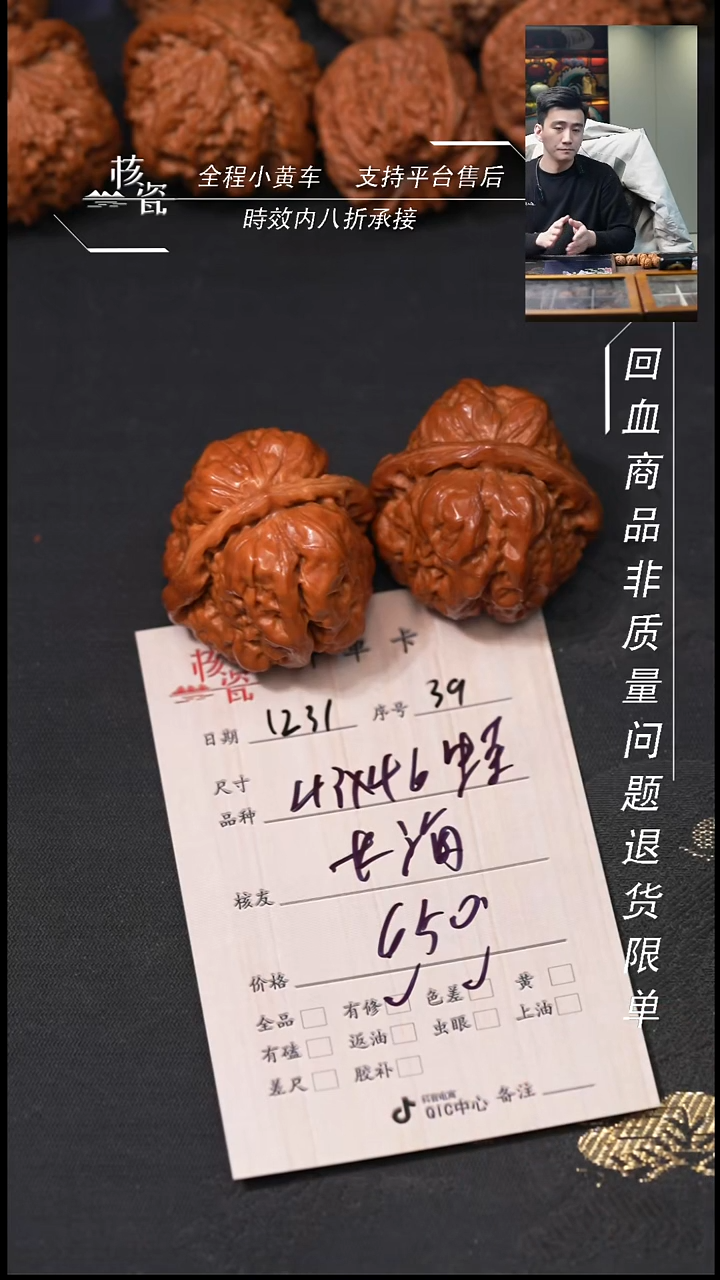 核瓷
全程小黄车 支持平台售后
時效内八折承接
回血商品非质量问题退货限单
核瓷
单卡
日期 1231 序号 39
尺寸 43x46
品种
核友 长海
价格 650
全品 有修 色差 黄
有磕 返油 虫眼 上油
差尺 胶补
抖音电商
QIC中心 备注